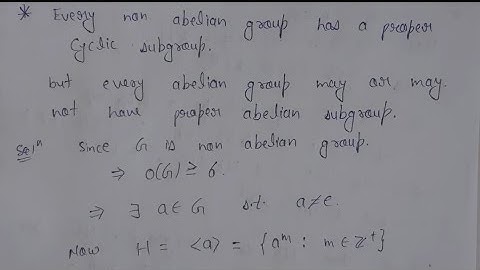 * Every non abelian group has a proper
Cyclic subgroup.
but every abelian group may or may.
not have proper abelian subgroup.
Solⁿ Since G is non abelian group.
⇒ O(G) ≥ 6.
⇒ ∃ a ∈ G s.t. a ≠ e.
Now H = <a> = {aᵐ : m ∈ Z⁺}